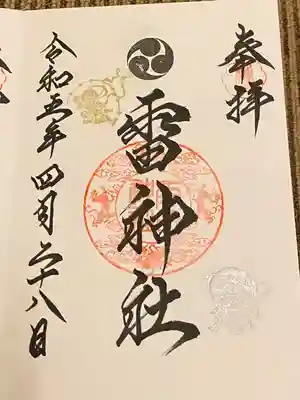 奉拝
雷神社
令和五年四月二十八日